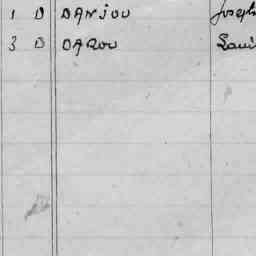 1 D DANJOU Joseph
3 D DAROU Loui